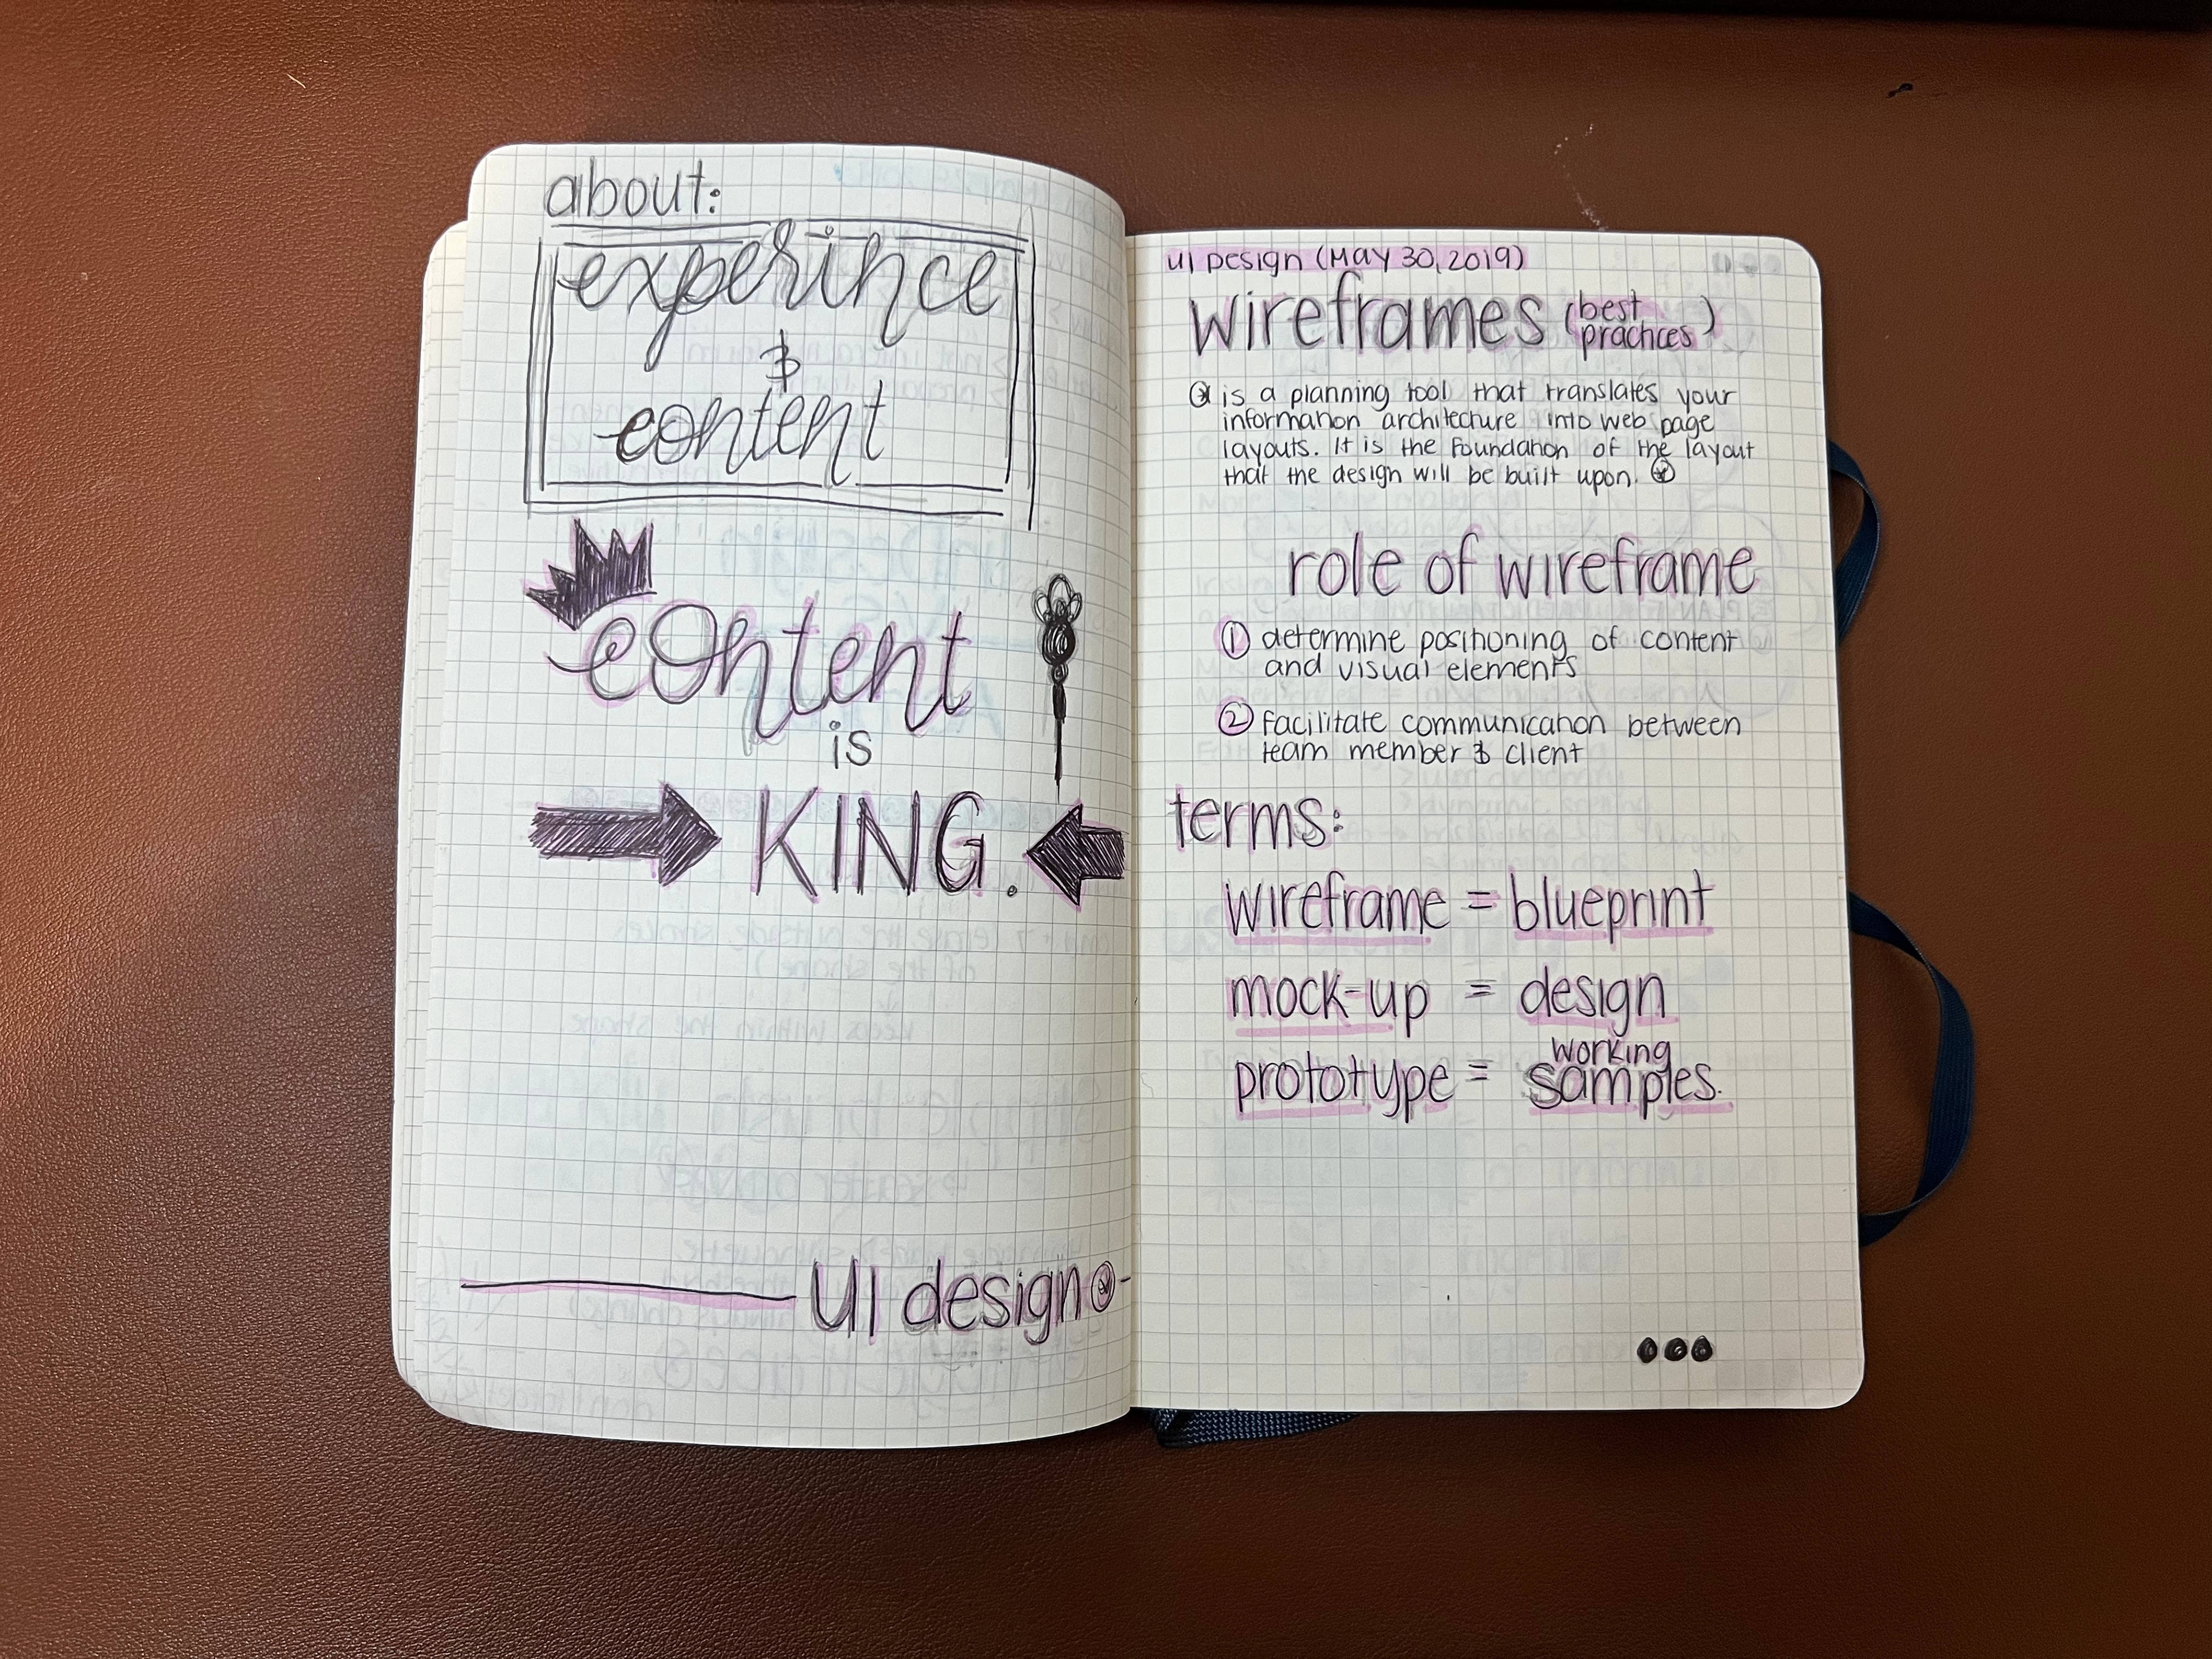 about:
experince
&
content
content
is
KING.
UI design
UI Design (MAY 30, 2019)
wireframes (best
practices)
is a planning tool that translates your
information architecture into web page
layouts. It is the foundation of the layout
that the design will be built upon.
role of wireframe
1 determine positioning of content
and visual elements
2 facilitate communication between
team member & client
terms:
wireframe = blueprint
mock-up = design
working
prototype = samples.